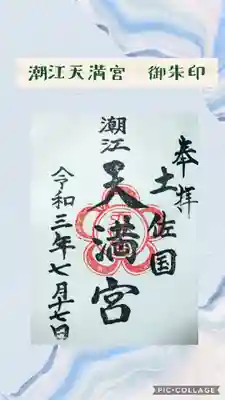 潮江天満宮　御朱印
奉拝
土佐国
潮江
天満宮
令和三年七月十七日
PIC•COLLAGE